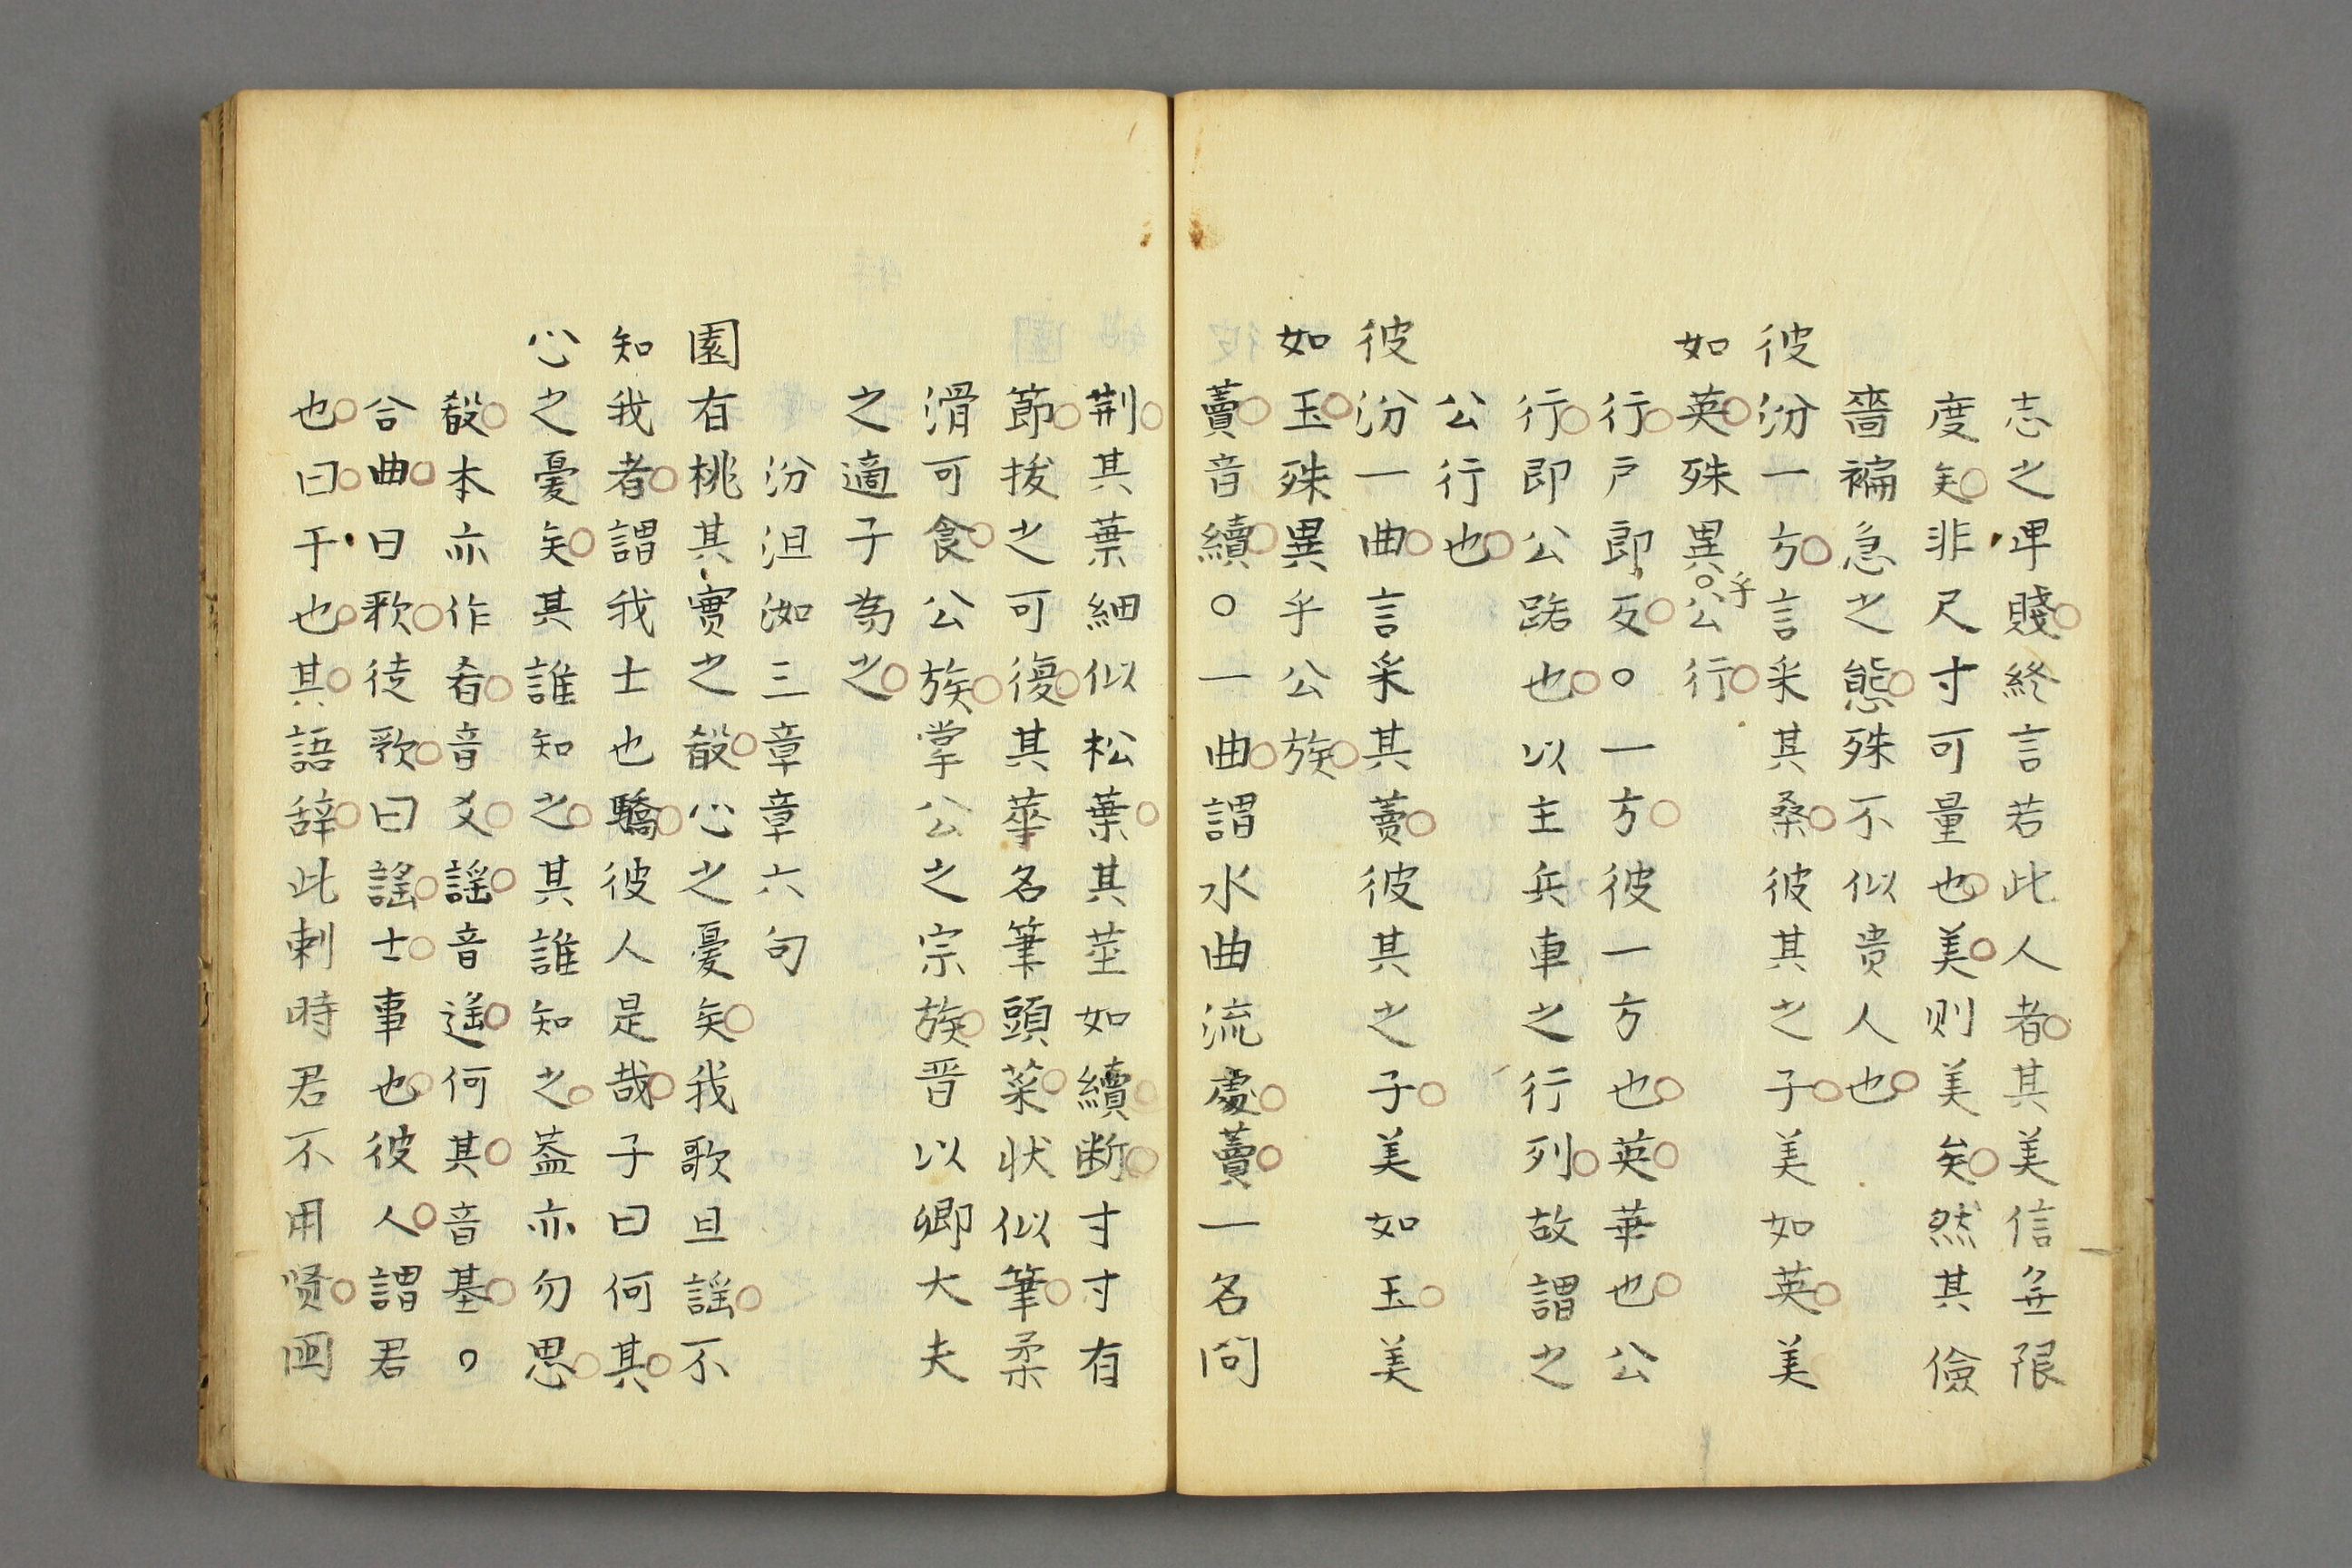 志之卑賤終言若此人者其美信無限
度矣非尺寸可量也美則美矣然其儉
嗇褊急之態殊不似貴人也
彼汾一方言采其桑彼其之子美如英美
如英殊異乎公行
行戶郎反○一方彼一方也英華也公
行即公路也以主兵車之行列故謂之
公行也
彼汾一曲言采其藚彼其之子美如玉美
如玉殊異乎公族
藚音續○一曲謂水曲流處藚一名问
荆其葉細似松葉其莖如續断寸寸有
節拔之可復其華名筆頭菜状似筆柔
滑可食公族掌公之宗族晋以卿大夫
之適子為之
汾沮洳三章章六句
園有桃其實之殽心之憂矣我歌且謡不
知我者謂我士也驕彼人是哉子曰何其
心之憂矣其誰知之其誰知之蓋亦勿思
殽本亦作肴音爻謡音遥何其音基○
合曲曰歌徒歌曰謡士事也彼人謂君
也曰于也其語辞此刺時君不用贤